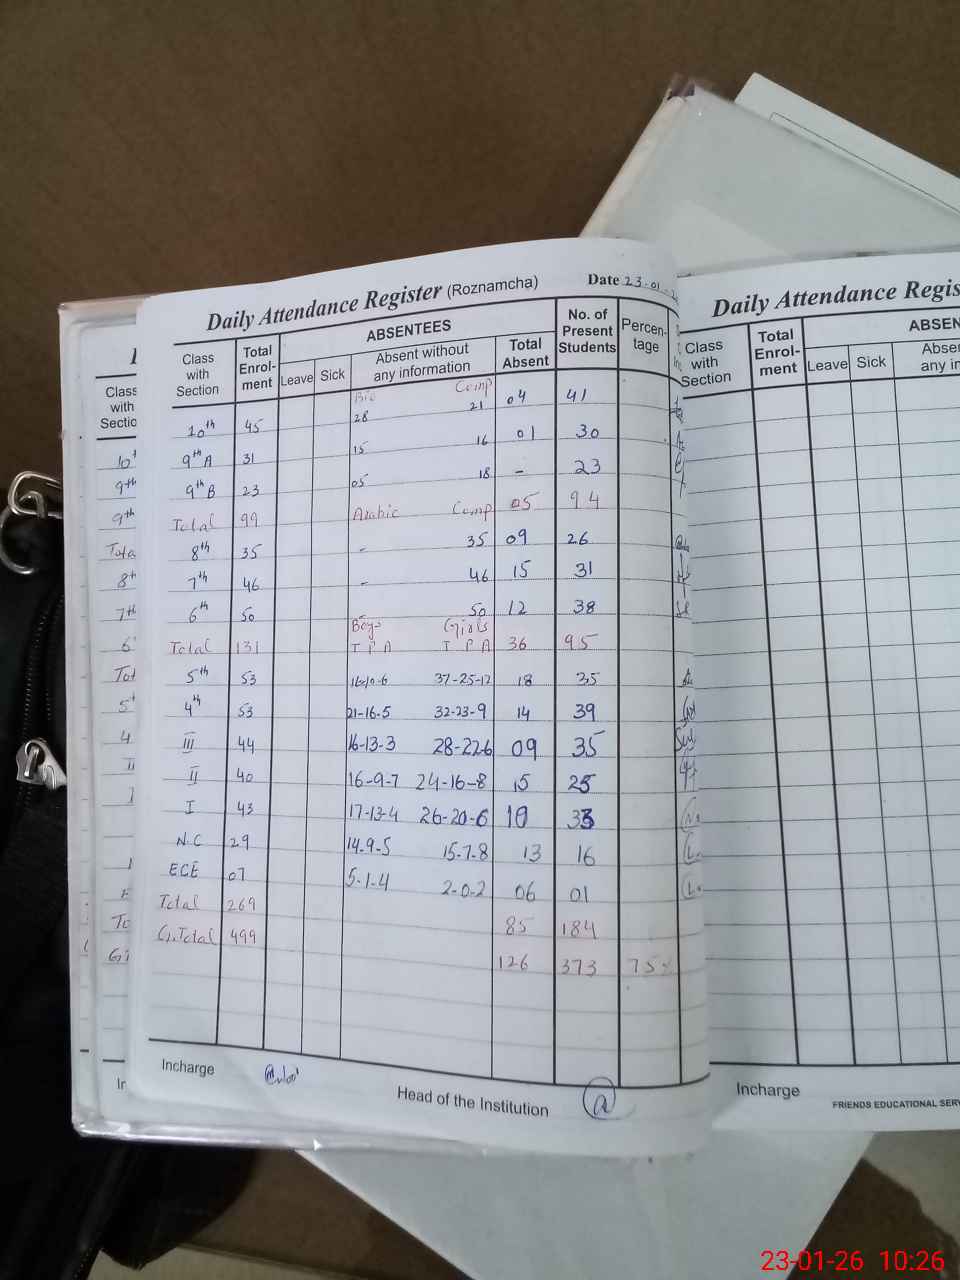 Daily Attendance Register (Roznamcha) Date 23-01-
Class with Section Total Enrol-ment ABSENTEES No. of Present Students Percen-tage
Leave Sick Absent without any information Total Absent
Bio Comp
10th 45 28 21 04 41
9th A 31 15 16 01 30
9th B 23 05 18 - 23
Total 99 Arabic Comp 05 94
8th 35 - 35 09 26
7th 46 - 46 15 31
6th 50 50 12 38
Boys Girls
Total 131 T P A T P A 36 95
5th 53 16-10-6 37-25-12 18 35
4th 53 21-16-5 32-23-9 14 39
III 44 16-13-3 28-22-6 09 35
II 40 16-9-7 24-16-8 15 25
I 43 17-13-4 26-20-6 10 33
N.C 29 14-9-5 15-7-8 13 16
ECE 07 5-1-4 2-0-2 06 01
Total 269 85 184
G.Total 499
126 373 75%
Incharge
Head of the Institution
Daily Attendance Regis
Class with Section Total Enrol-ment ABSEN
Leave Sick
Incharge
FRIENDS EDUCATIONAL SERV
Class with
10t
9th
9th
Tota
8th
7th
6
Tot
5
4
23-01-26 10:26